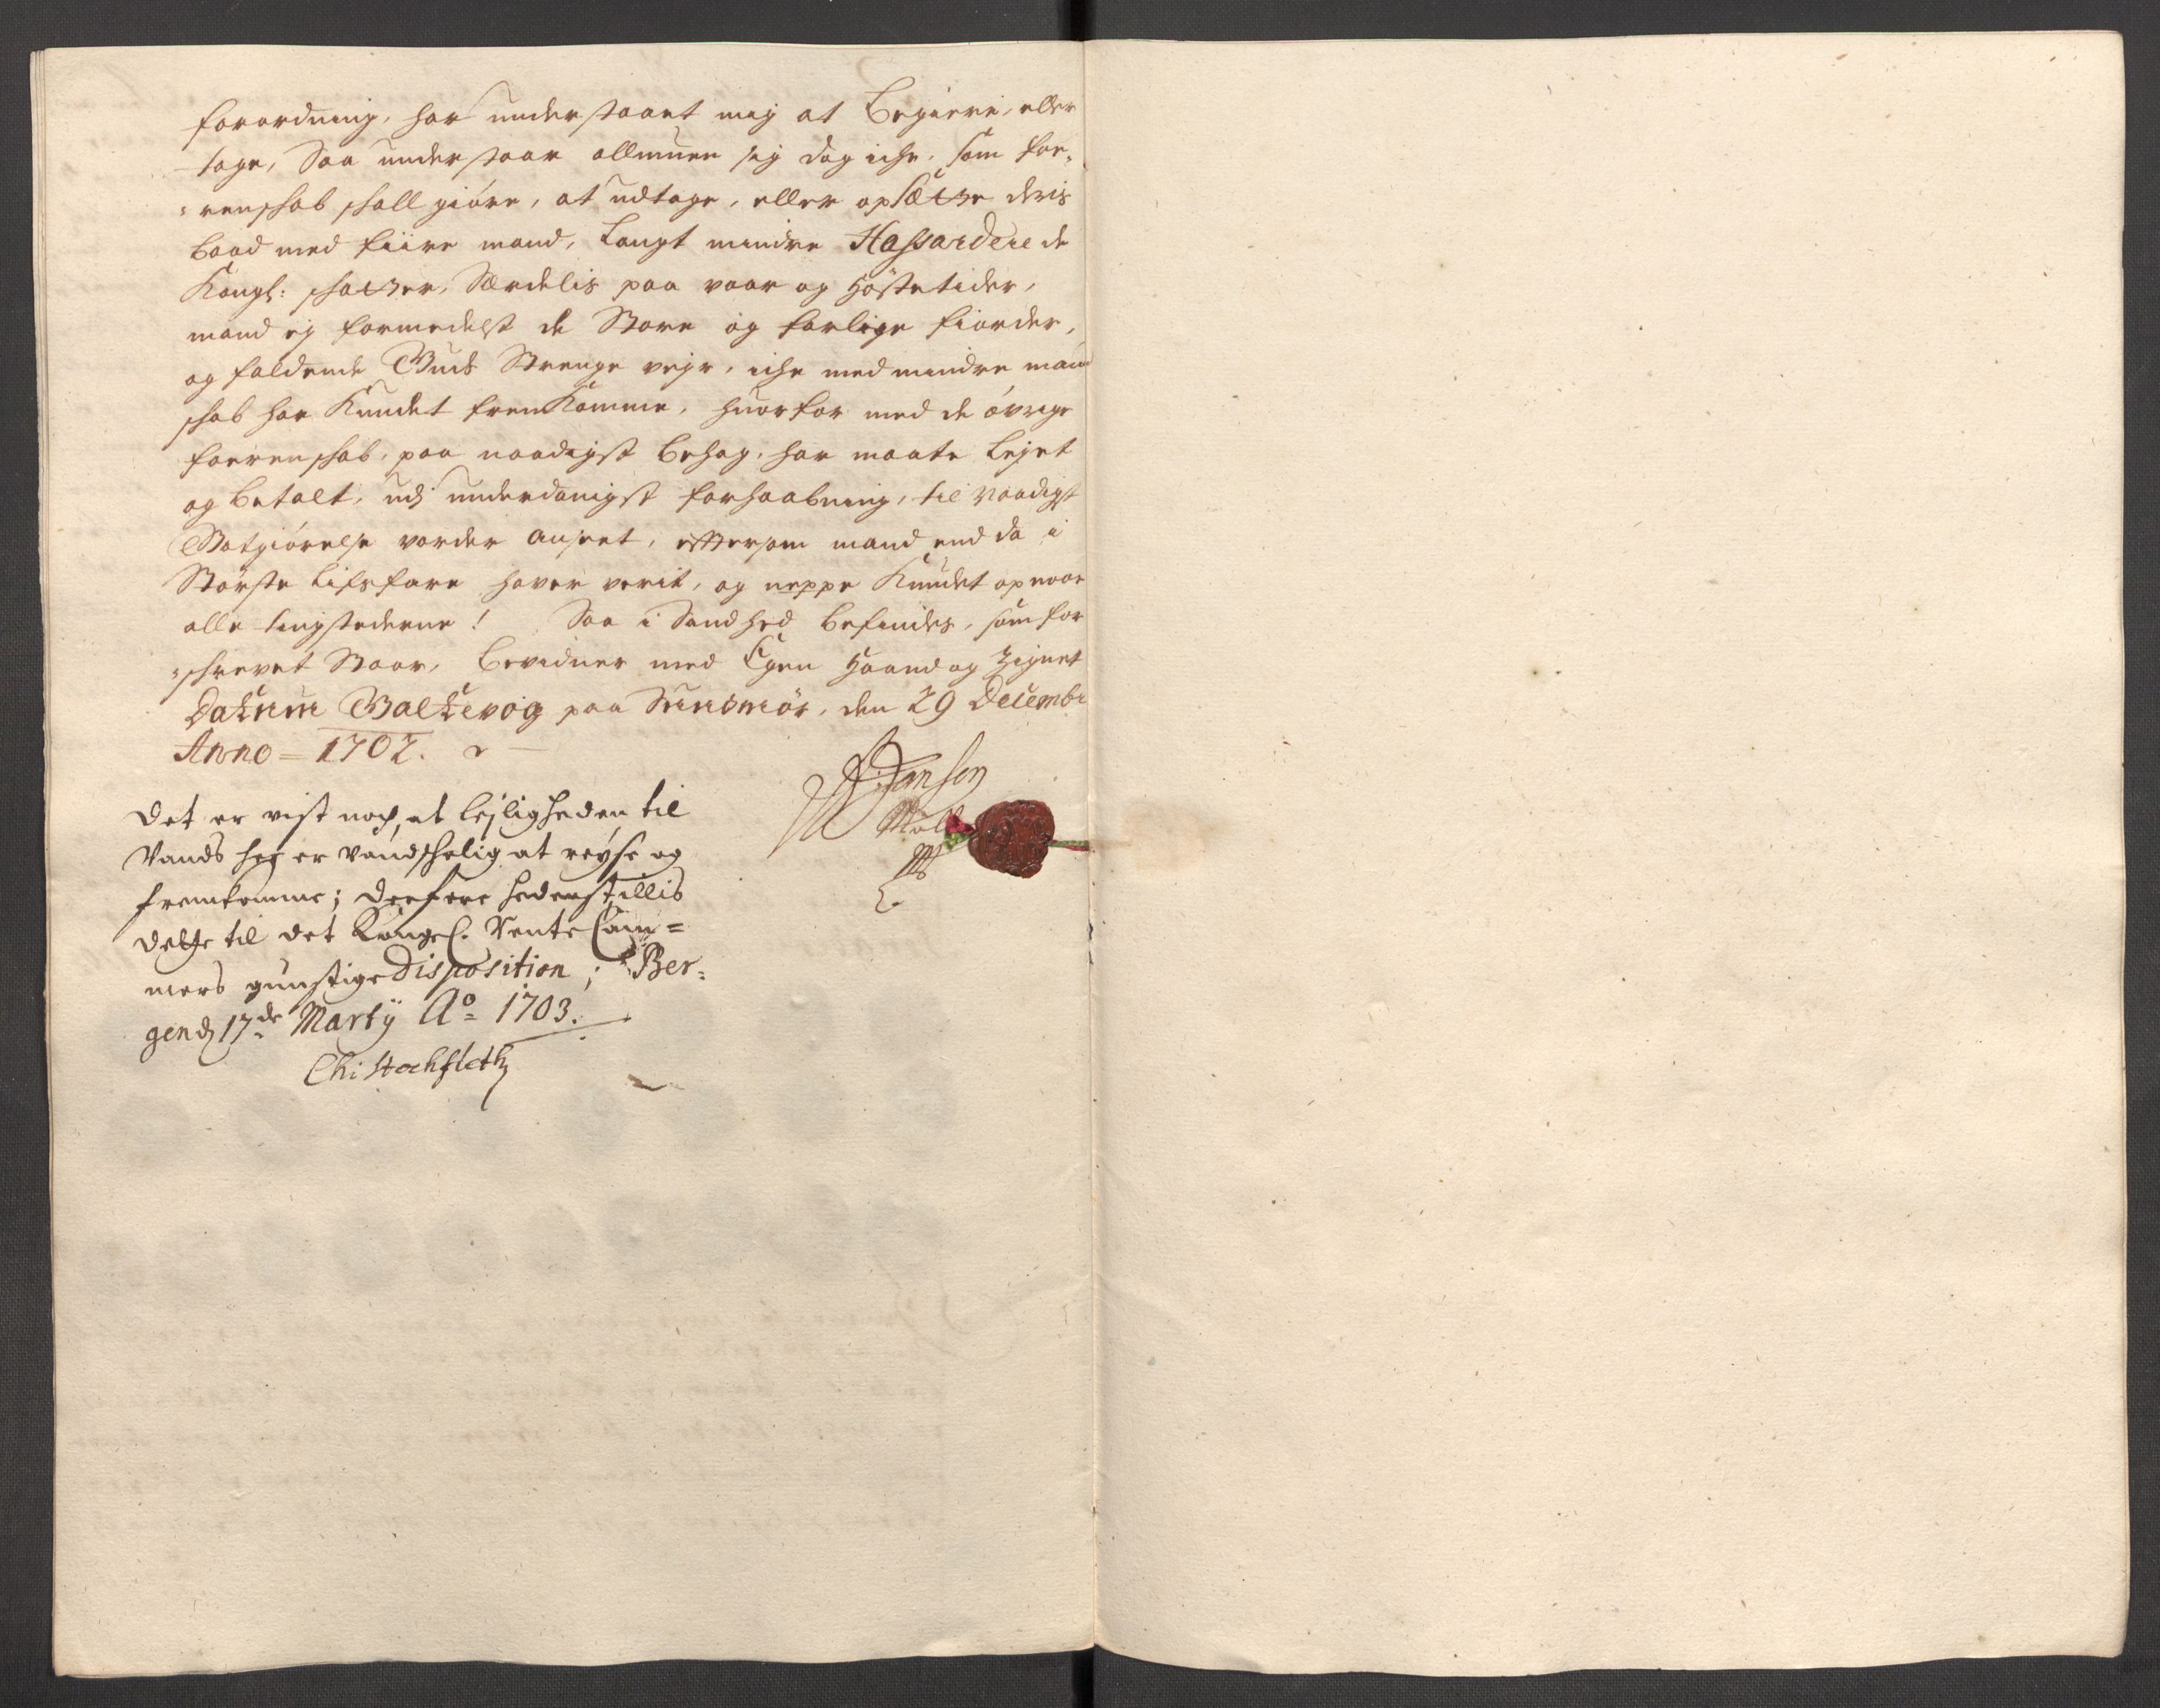 forordning, har understaaet mig at Begiere, eller
tage, Saa understaar allmuen sig dog iche, som før,
:renschab schall giöre, at udtage, eller opsætte deris
baad med fiire mand, langt mindre Hassardere de
Kongl: schatter, Særdelis paa vaar og Höstetider,
mand ej formedelst de Store og farlige fiorder,
og faldende Guds Strenge vejr, iche med mindre mand
schab har Kundet fremkomme, huorfor med de övrige
förrenschab, paa naadigst behag, har maate lejet
og betalt, udj underdanigst forhaabning, til Naadigst
Gotgiörelse vorder anseet, eftersom mand end da i
Störste lifsfare haver verit, og neppe Kundet opnaae
alle tingstederne! Saa i Sandhed befindes, som for
:schrevet Staar, bevidner med Egen Haand og Zignet
Datum Waltevog paa Sundmör, den 29 Decembr
Anno = 1702.
Janson
Det er vist noch, at lejligheden til
Vands her er vandschelig at reyse og
fremkomme; derfore hedenstillis
dette til det Kongel. Rente Cam=
mers gunstige Disposition; Ber=
gen d 17de Martij Ao 1703.
Chr Stockfleth